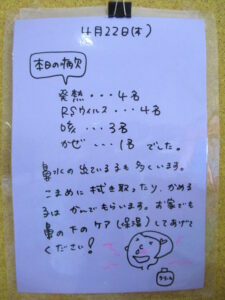 4月22日(木)
本日の病欠
発熱・・・4名
RSウイルス・・・4名
咳・・・3名
かぜ・・・1名 でした。
鼻水の出ている子も多くいます。
こまめに拭き取ったり、かめる
子は かんでもらいます。お家でも
鼻の下のケア(保湿)してあげて
ください!
クリーム